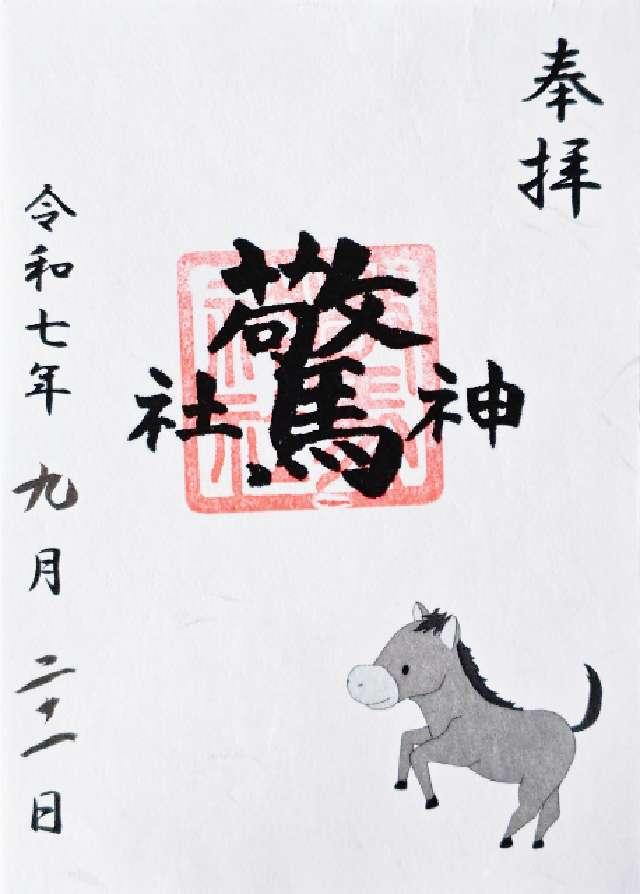 奉拝
驚
神社
令和七年九月二十一日